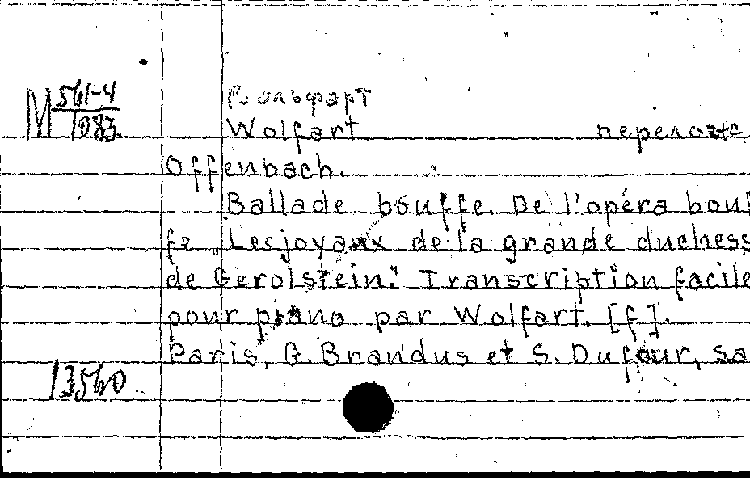 М 561-4
1083
Вольфарт
Wolfart перелож
Offenbach.
Ballade bouffe. De l'opéra bouf
fe „Les joyaux de la grande duchess
de Gerolstein." Transcription facile
pour piano par Wolfart. [f].
Paris, G. Brandus et S. Dufour, sa
13560